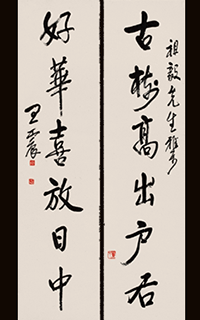 古樹高出户右
祖毅先生雅屬
好華喜放日中